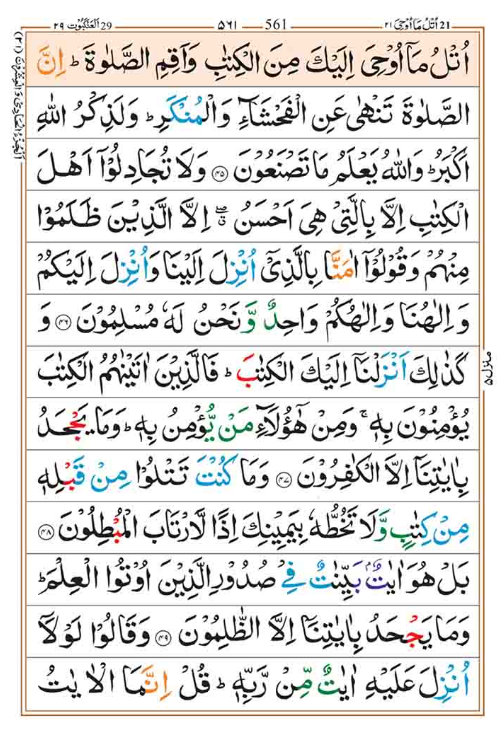 اتل مآ اوحی ۲۱ 561 ۵۶۱ العنکبوت ۲۹
اُتْلُ مَآ اُوْحِىَ اِلَيْكَ مِنَ الْكِتٰبِ وَاَقِمِ الصَّلٰوةَ ؕ اِنَّ
الصَّلٰوةَ تَنْهٰى عَنِ الْفَحْشَآءِ وَالْمُنْكَرِ ؕ وَلَذِكْرُ اللّٰهِ
اَكْبَرُ ؕ وَاللّٰهُ يَعْلَمُ مَا تَصْنَعُوْنَ ۝۴۵ وَلَا تُجَادِلُوْۤا اَهْلَ
الْكِتٰبِ اِلَّا بِالَّتِىْ هِىَ اَحْسَنُ ۖ اِلَّا الَّذِيْنَ ظَلَمُوْا
مِنْهُمْ وَقُوْلُوْۤا اٰمَنَّا بِالَّذِىْۤ اُنْزِلَ اِلَيْنَا وَاُنْزِلَ اِلَيْكُمْ
وَاِلٰهُنَا وَاِلٰهُكُمْ وَاحِدٌ وَّنَحْنُ لَهٗ مُسْلِمُوْنَ ۝۴۶ وَ
كَذٰلِكَ اَنْزَلْنَاۤ اِلَيْكَ الْكِتٰبَ ؕ فَالَّذِيْنَ اٰتَيْنٰهُمُ الْكِتٰبَ
يُؤْمِنُوْنَ بِهٖ ۚ وَمِنْ هٰٓؤُلَآءِ مَنْ يُّؤْمِنُ بِهٖ ؕ وَمَا يَجْحَدُ
بِاٰيٰتِنَاۤ اِلَّا الْكٰفِرُوْنَ ۝۴۷ وَمَا كُنْتَ تَتْلُوْا مِنْ قَبْلِهٖ
مِنْ كِتٰبٍ وَّلَا تَخُطُّهٗ بِيَمِيْنِكَ اِذًا لَّارْتَابَ الْمُبْطِلُوْنَ ۝۴۸
بَلْ هُوَ اٰيٰتٌۢ بَيِّنٰتٌ فِىْ صُدُوْرِ الَّذِيْنَ اُوْتُوا الْعِلْمَ ؕ
وَمَا يَجْحَدُ بِاٰيٰتِنَاۤ اِلَّا الظّٰلِمُوْنَ ۝۴۹ وَقَالُوْا لَوْلَاۤ
اُنْزِلَ عَلَيْهِ اٰيٰتٌ مِّنْ رَّبِّهٖ ؕ قُلْ اِنَّمَا الْاٰيٰتُ
منزل ۵